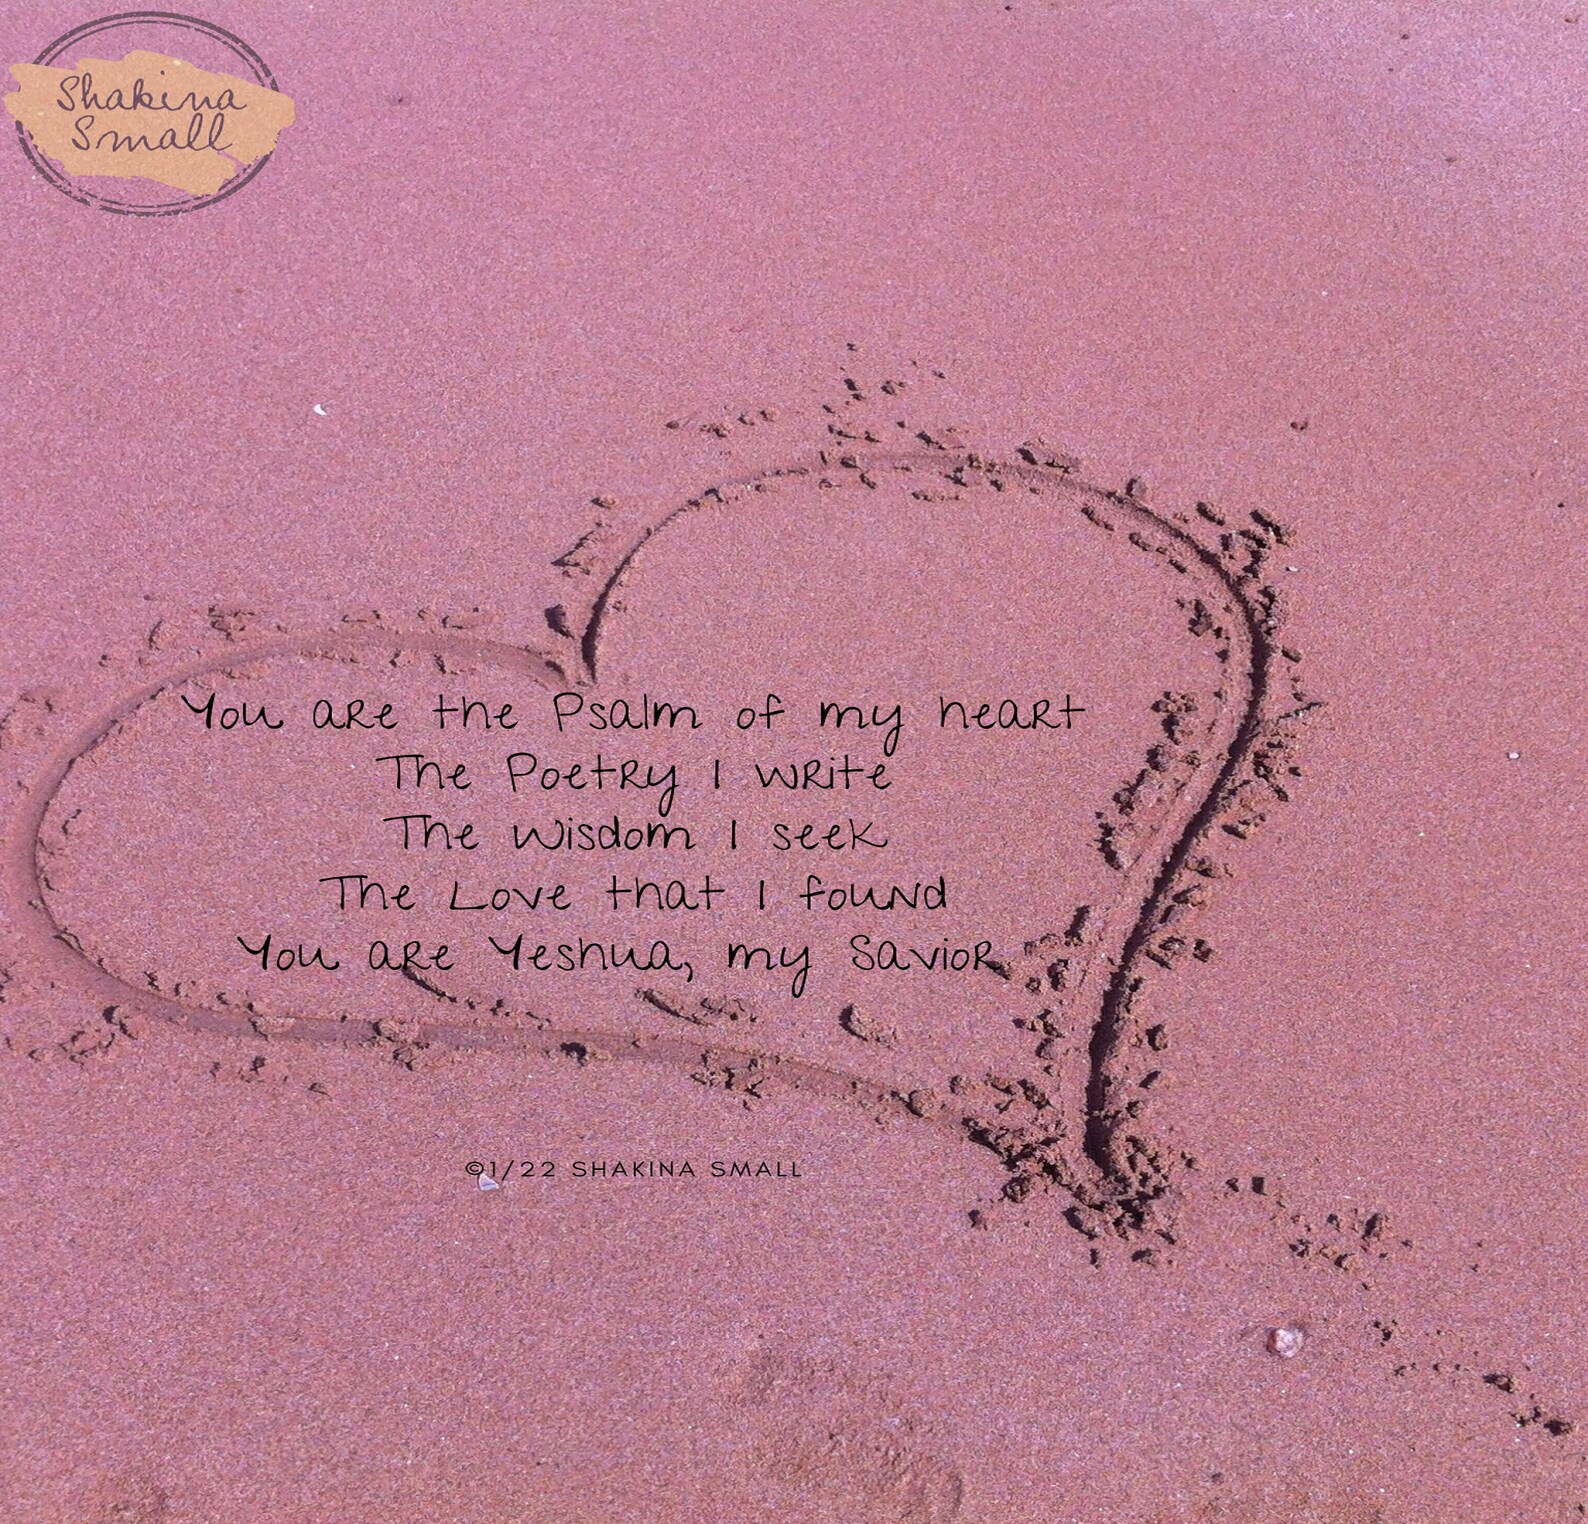 Shakina
Small
You are the Psalm of my heart
The Poetry I write
The Wisdom I seek
The Love that I found
You are Yeshua, my Savior
©1/22 SHAKINA SMALL